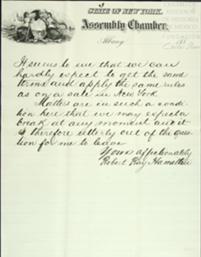 STATE OF NEW YORK.
Assembly Chamber,
Albany
188
It seems to me that we can
hardly expect to get the same
terms and apply the same rules
as on a sale in New York
Matters are in such a condi-
tion here that we may expect a
break at any moment and it
is therefore utterly out of the ques-
tion for me to leave
Yours affectionately
Robert Ray Hamilton